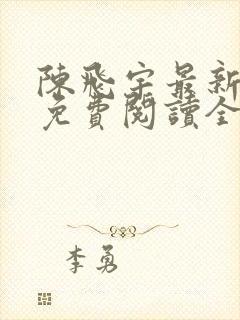 陳飛宇最新
免費閱讀全
李勇